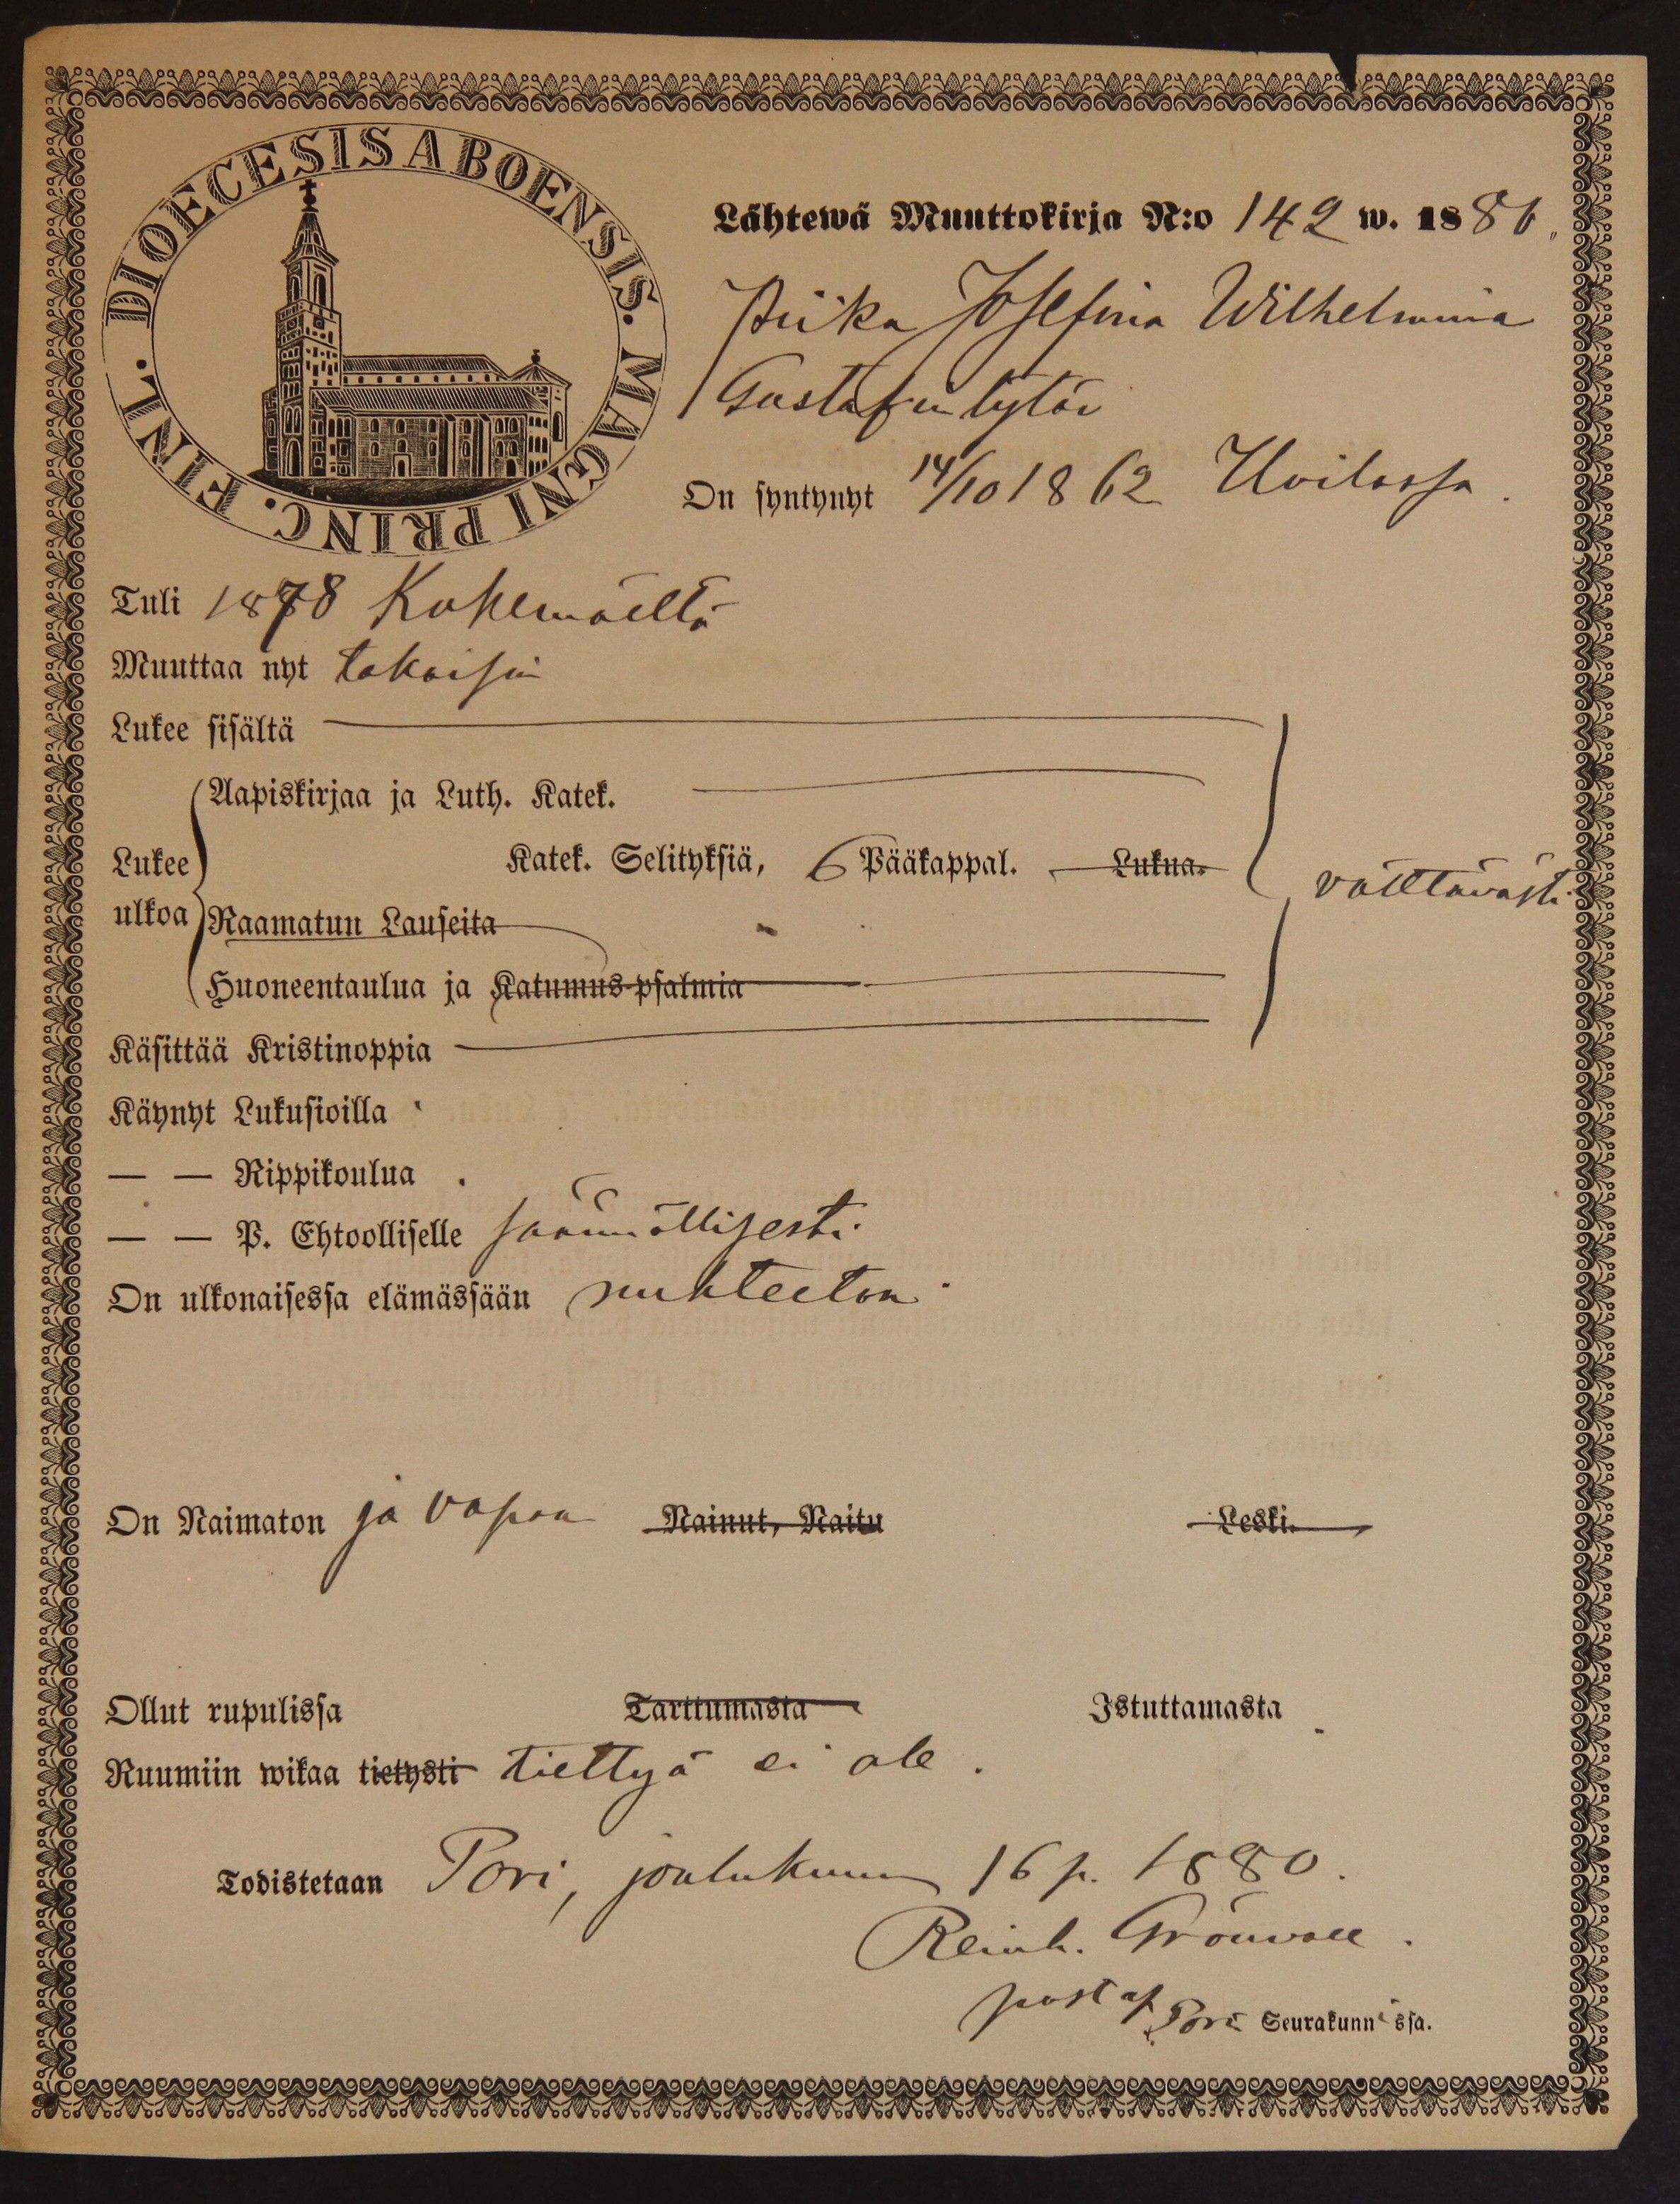 DIOECESIS ABOENSIS. MAGNI PRINC. FINL.
Lähtewä Muuttokirja N:o 142 w. 1880.
Piika Josefina Wilhelmina
Gustafintytär
On syntynyt 14/10 1862 Ulvilassa.
Tuli 1878 Kokemäeltä
Muuttaa nyt takaisin
Lukee sisältä
Aapiskirjaa ja Luth. Katek.
Lukee ulkoa
Katek. Selityksiä, 6 Pääkappal. Lukua.
välttävästi
Raamatun Lauseita
Huoneentaulua ja Katumus-psalmia
Käsittää Kristinoppia
Käynyt Lukusioilla
— — Rippikoulua
— — P. Ehtoolliselle säännöllisesti
On ulkonaisessa elämässään nuhteeton
On Naimaton ja vapaa Nainut, Naitu Leski.
Ollut rupulissa Tarttumasta Istuttamasta
Ruumiin wikaa tietysti tiettyä ei ole.
Todistetaan Pori, joulukuun 16 p. 1880.
Reinh. Grönvall.
past Pori Seurakunnissa.